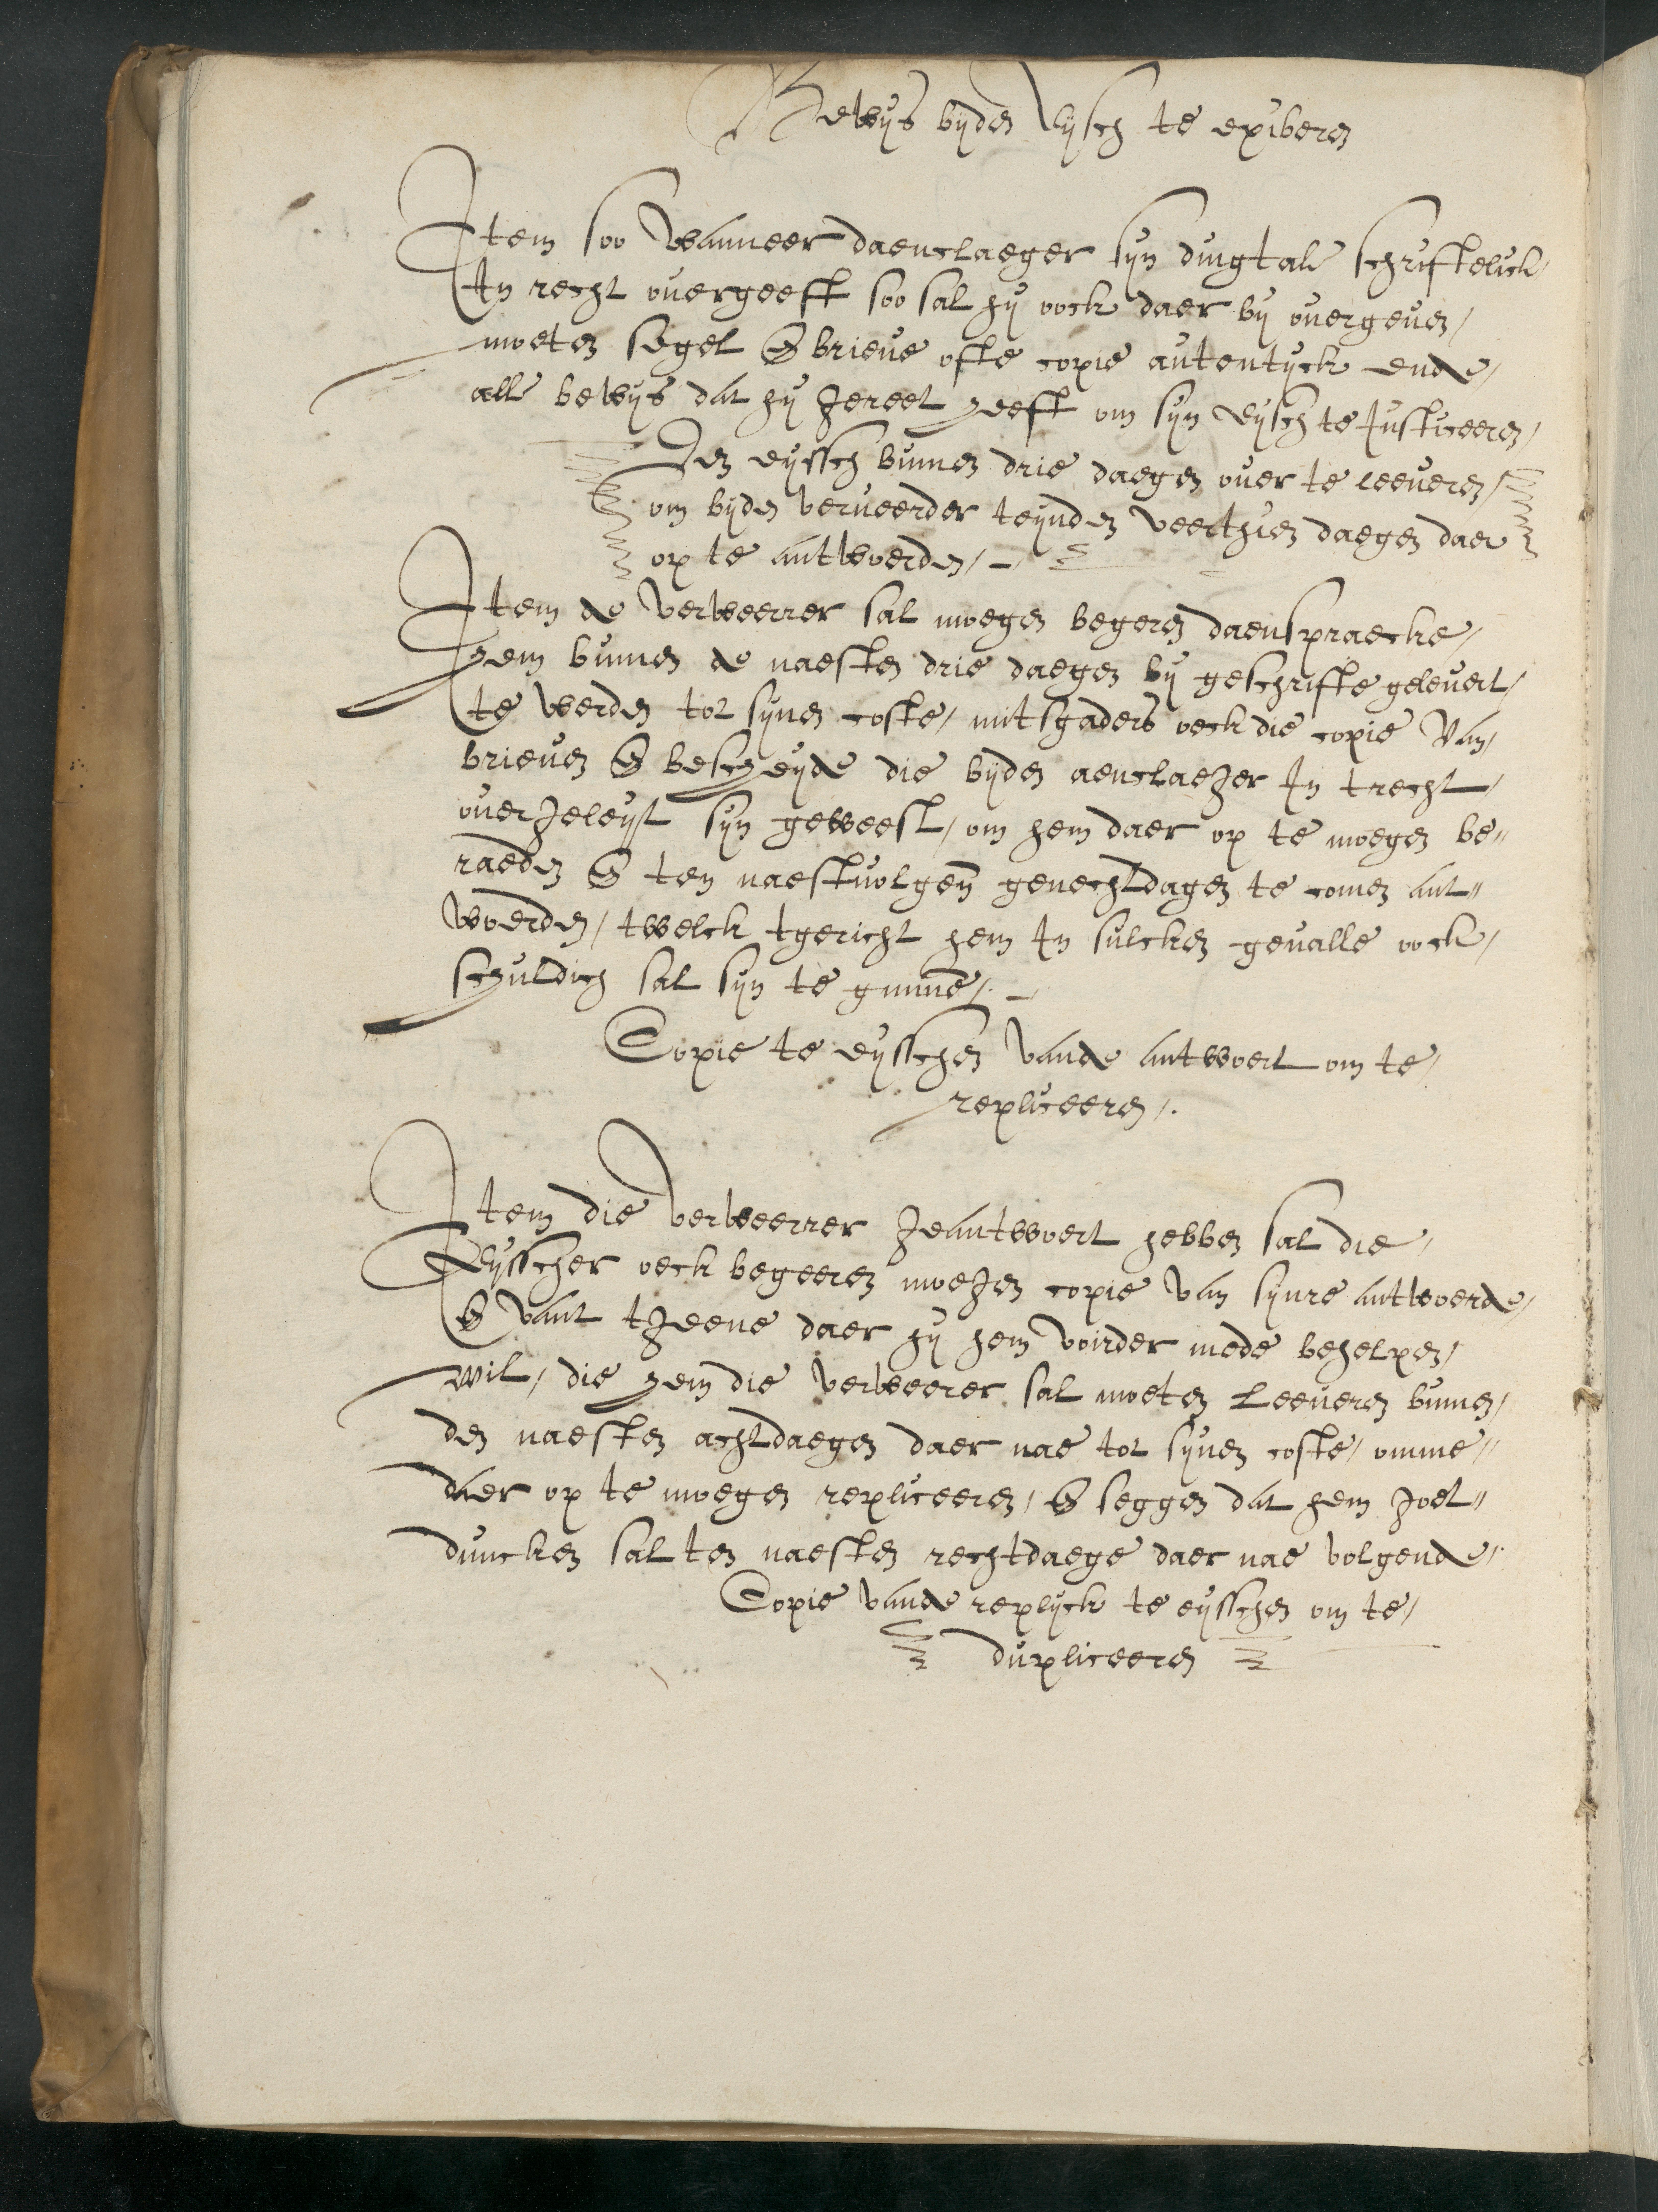 Bewijs bijden Eijsch te exiberen
Item soo wanneer daenclaeger sijn dingtale schriftelick
In recht ouergeeft soo sal hij oock daer bij ouergeuen
moeten segel & brieue ofte copie autentijck ende
alle bewijs dat hij gereet heeft om sijn eijsch te Justiceeren
Den eijssch binnen drie daegen ouer te leeueren
om bijden verueerder teijnden veerthien daegen daer
op te antwoerden
Item de verweerrer sal moegen begeren daenspraecke
hem binnen de naesten drie daegen bij geschrifte geleuert
te werden tot sijnen coste / mitsgaders oeck die copie van
brieuen & bescheijde die bijden aenclaeger In trecht
ouergeleijt sijn geweest / om hem daer op te moegen be„
raeden & ten naestuolgen̄ genechtdagen te comen ant„
woerden / twelck tgericht hem In sulcken geualle oock
schuldich sal sijn te gunne
Copie te eijsschen vande antwoert om te
repliceeren
Item die verweerrer geantwoert hebben sal die
Eijsscher oeck begeeren moegen copie van sijnre antwoerde
& vant tgeene daer hij hem voirder mede behelpen
wil / die hem die verweerer sal moeten leeueren binnen
den naesten achtdaegen daer nae tot sijnen coste / omme„
daer op te moegen repliceeren / & seggen dat hem goet„
duncken sal ten naesten rechtdaege daer nae volgende
Copie vande replijck te eijsschen om te
dupliceeren